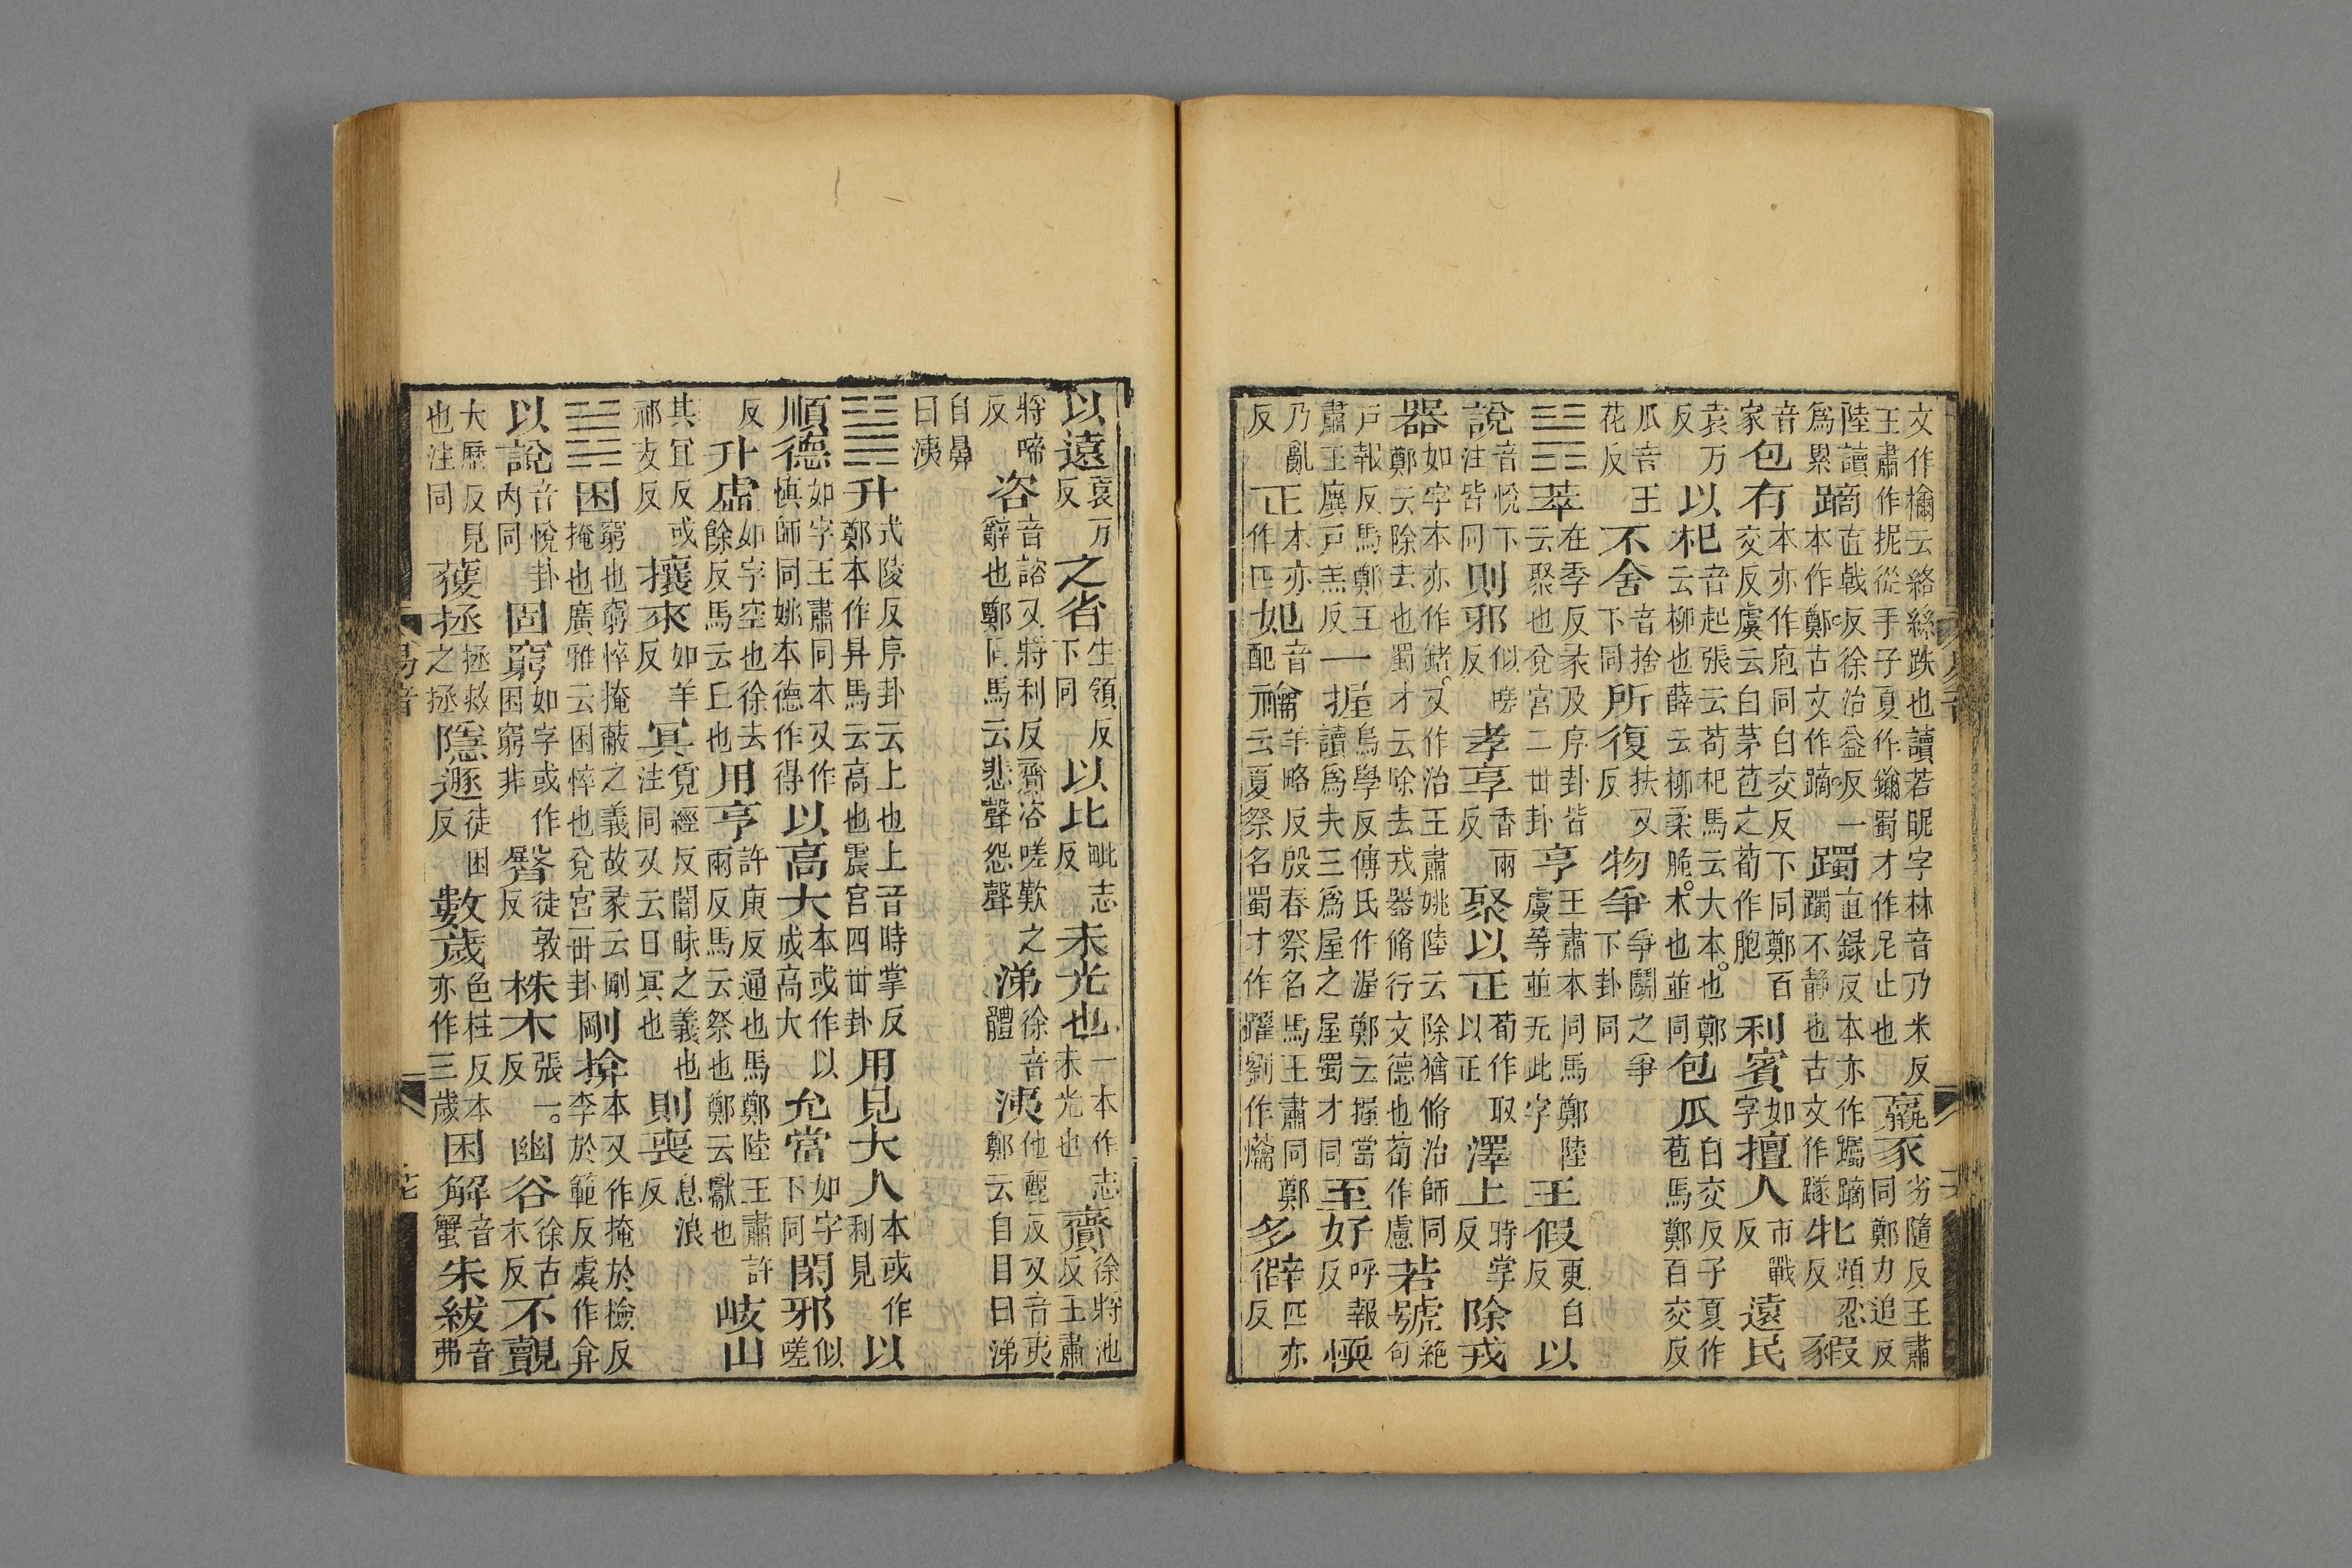 文作檷云絡絲趺也讀若昵字林音乃米反
王肅作抳從手子夏作鑈蜀才作尼止也
羸豕劣隨反王肅同鄭力追反
陸讀爲累
蹢直戟反徐治益反一本作鄭古文作蹢
躅直録反本亦作躑蹢躅不靜也古文作䠱
牝頻忍反
豭音家
包有本亦作庖同白交反下同鄭百交反虞云白茅苞之荀作胞
利賓如字
擅人市戰反
遠民袁万反
以杞音起張云苟杞馬云大木也鄭云柳也薛云柳柔脆木也並同
包瓜白交反子夏作苞馬鄭百交反
瓜音花反
不舍音捨下同
所復扶又反
物爭爭鬭之爭下卦同
䷬萃在季反彖及序卦皆云聚也兌宮二世卦
亨王肅本同馬鄭陸虞等並无此字
王假更白反
以說音悅下注皆同
則邪似嗟反
孝享香兩反
聚以正荀作取以正
澤上時掌反
除戎器如字本亦作鍺又作治王肅姚陸云除猶脩治師同鄭云除去也蜀才云除去戎器脩行文德也荀作慮
若號絕句戶報反馬鄭王肅王廙戶羔反
一握烏學反傅氏作渥鄭云握當讀爲夫三爲屋之屋蜀才同
至好呼報反
愞乃亂反
正本亦作匹
妃音配
禴羊略反殷春祭名馬王肅同鄭云夏祭名蜀才作躍劉作㸁
多僻匹亦反
以遠袁万反
之省生領反下同
以比毗志反
未光也一本作志未光也
齎徐將池反王肅將啼反
咨音諮又將利反齎咨嗟歎之辭也鄭同馬云悲聲怨聲
涕徐音體
洟他麗反又音夷鄭云自目曰涕自鼻曰洟
䷭升式陵反序卦云上也上音時掌反鄭本作昇馬云高也震宮四世卦
用見大人本或作利見
以順德如字王肅同本又作愼師同姚本德作得
以高大本或作以成高大
允當如字下同
閑邪似嗟反
升虛如字空也徐去餘反馬云丘也
用亨許庚反通也馬鄭陸王肅許兩反馬云祭也鄭云獻也
岐山其宜反或祁支反
攘來如羊反
冥覓經反闇昧之義也注同又云日冥也
則喪息浪反
䷮困窮也窮悴掩蔽之義故彖云剛掩也廣雅云困悴也兌宮一世卦
剛揜本又作掩於檢反李於範反虞作弇
以說音悅卦內同
固窮如字或作困窮非
臀徒敦反
株木張一反
幽谷徐古木反
不覿大歷反見也注同
獲拯拯救之拯
隱遯徒困反
數歲色柱反本亦作三歲
困解音蟹
朱紱音弗
易音